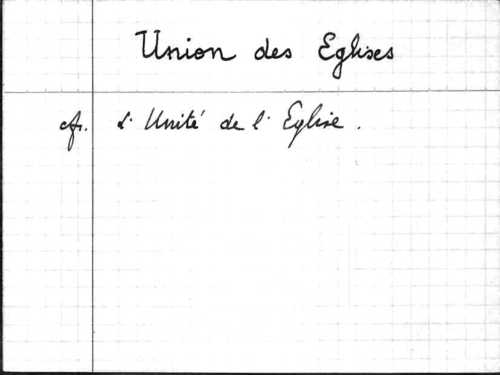 Union des Eglises
cfr. L'Unité de l'Eglise.